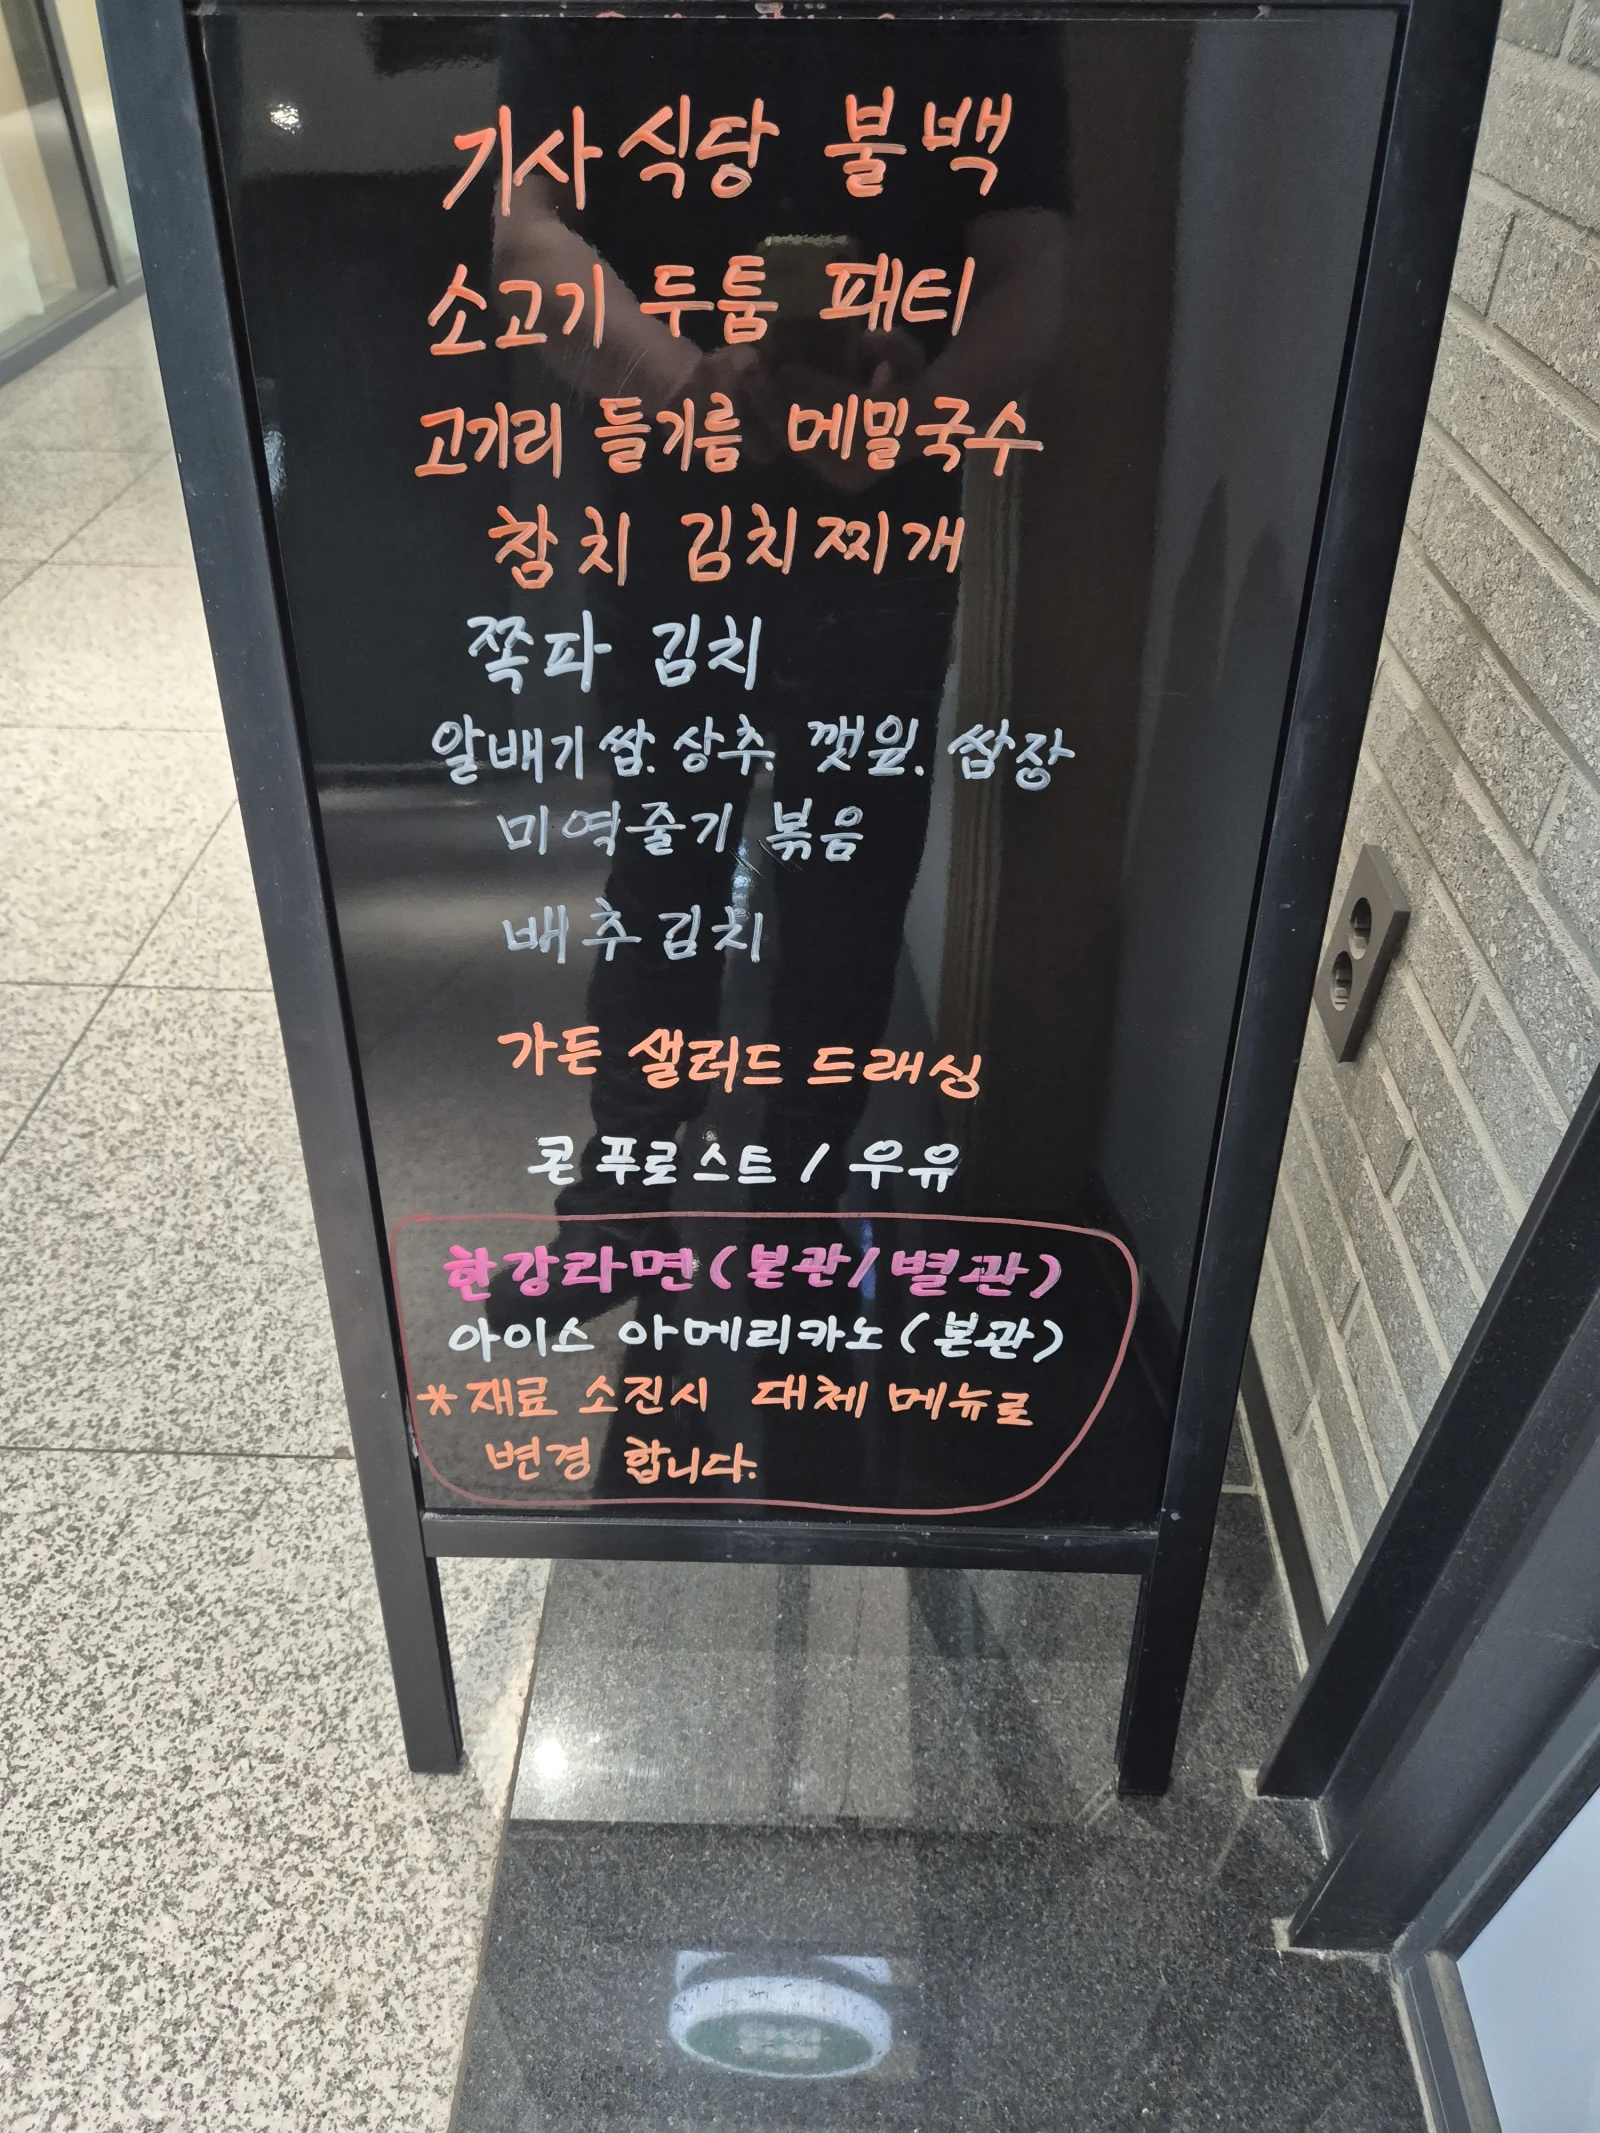 기사식당 불백
소고기 두툼 패티
고기리 들기름 메밀국수
참치 김치찌개
쪽파 김치
알배기쌈. 상추. 깻잎. 쌈장
미역줄기 볶음
배추김치
가든 샐러드 드래싱
콘푸로스트 / 우유
한강라면 (본관/별관)
아이스 아메리카노 (본관)
*재료 소진시 대체 메뉴로
변경 합니다.